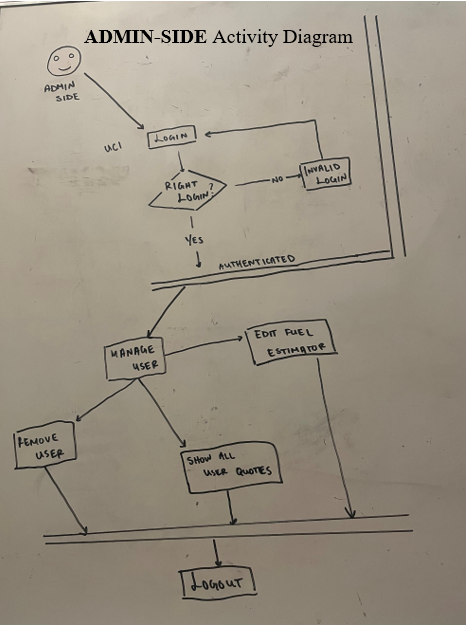 ADMIN-SIDE Activity Diagram
ADMIN
SIDE
UC1
LOGIN
RIGHT
LOGIN?
NO
INVALID
LOGIN
YES
AUTHENTICATED
MANAGE
USER
EDIT FUEL
ESTIMATOR
REMOVE
USER
SHOW ALL
USER QUOTES
LOGOUT